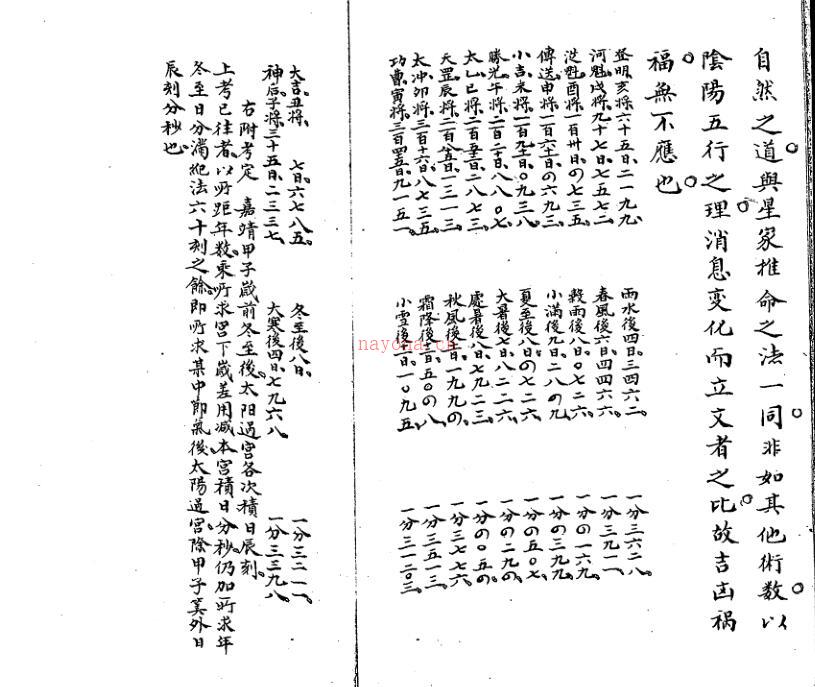 自然之道與星家推命之法一同非如其他術数以
陰陽五行之理消息变化而立文者之比故吉凶禍
福無不應也
登明亥将六十五日二一九九 雨水後四日三四六二 一分三六二八
河魁戌将九十七日七五七二 春風後六日四四六六 一分三九一一
酉将一百卅日の七三五 穀雨後八日〇七二六 一分の一六九
傳送申将一百六十日の六九三 小満後九日二八の九 一分の三九九
小吉未将一百九十日〇九三八 夏至後八日の七二六 一分の五〇七
勝光午将二百二日八八〇七 大暑後七日八二二六 一分の二九の
太乙巳将二百五十日二八七三 處暑後八日七九二三 一分の〇五の
天罡辰将二百八五日三一三 秋風後日一九九の 一分三七七六
太冲卯将三百十六日八七三五 霜降後百五〇の八 一分三五一三
功曹寅将三百四五日九一五一 小雪後百一〇九五 一分三一二〇三
大吉丑将 七日六七八五 冬至後八日 一分三二一一
神后子将三十五日二三三七 大寒後四日七九六八 一分三三九八
右附考定 嘉靖甲子歳前冬至後太阳過宮各次積日辰刻
上考已往者以所距年数乘所求宮下歳差用减本宮積日分秒仍加所求年
冬至日分満紀法六十刻之餘即所求某中節氣後太陽過宮除甲子筭外日
辰刻分秒也
nayona.cn